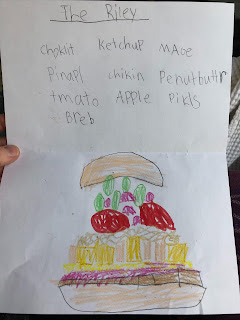 The Riley
Choklit Ketchup MAOE
Pinapl chikin Penutbuttr
tmato APPle Pikls
Breb